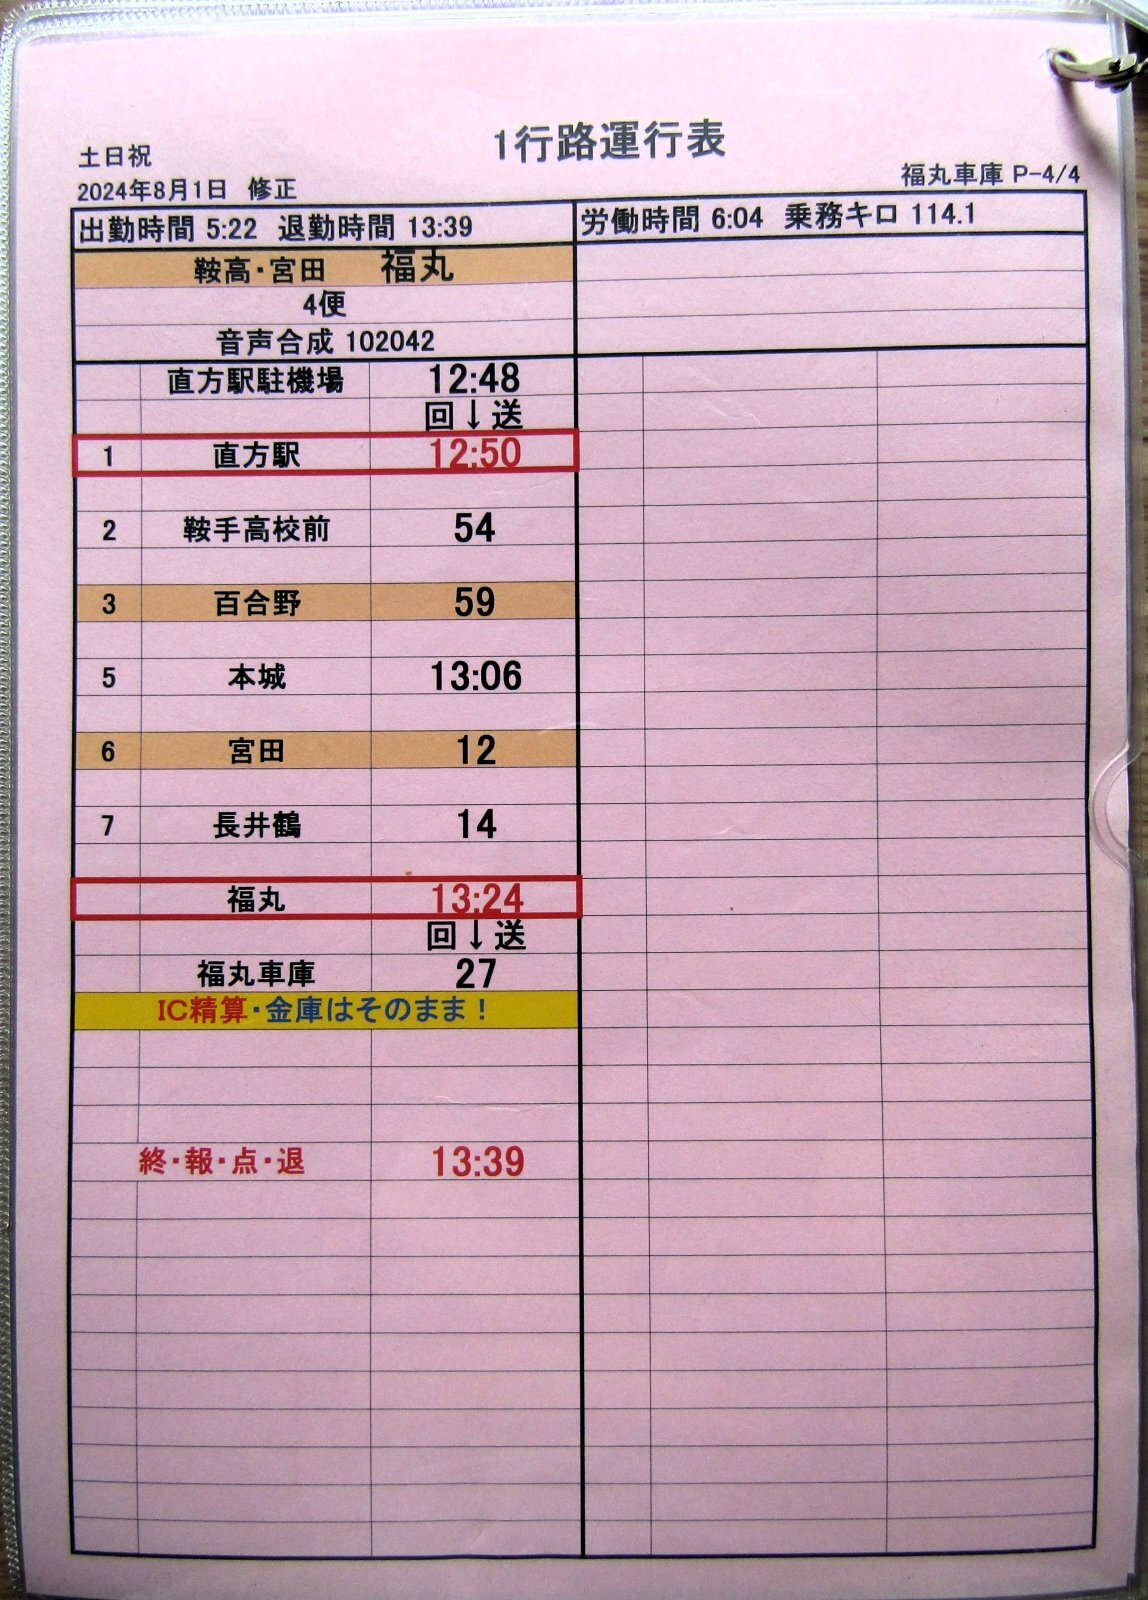 1行路運行表
土日祝
2024年8月1日 修正
福丸車庫 P-4/4
出勤時間 5:22 退勤時間 13:39
労働時間 6:04 乗務キロ 114.1
鞍高・宮田 福丸
4便
音声合成 102042
直方駅駐機場 12:48
回↓送
1 直方駅 12:50
2 鞍手高校前 54
3 百合野 59
5 本城 13:06
6 宮田 12
7 長井鶴 14
福丸 13:24
回↓送
福丸車庫 27
IC精算・金庫はそのまま！
終・報・点・退 13:39